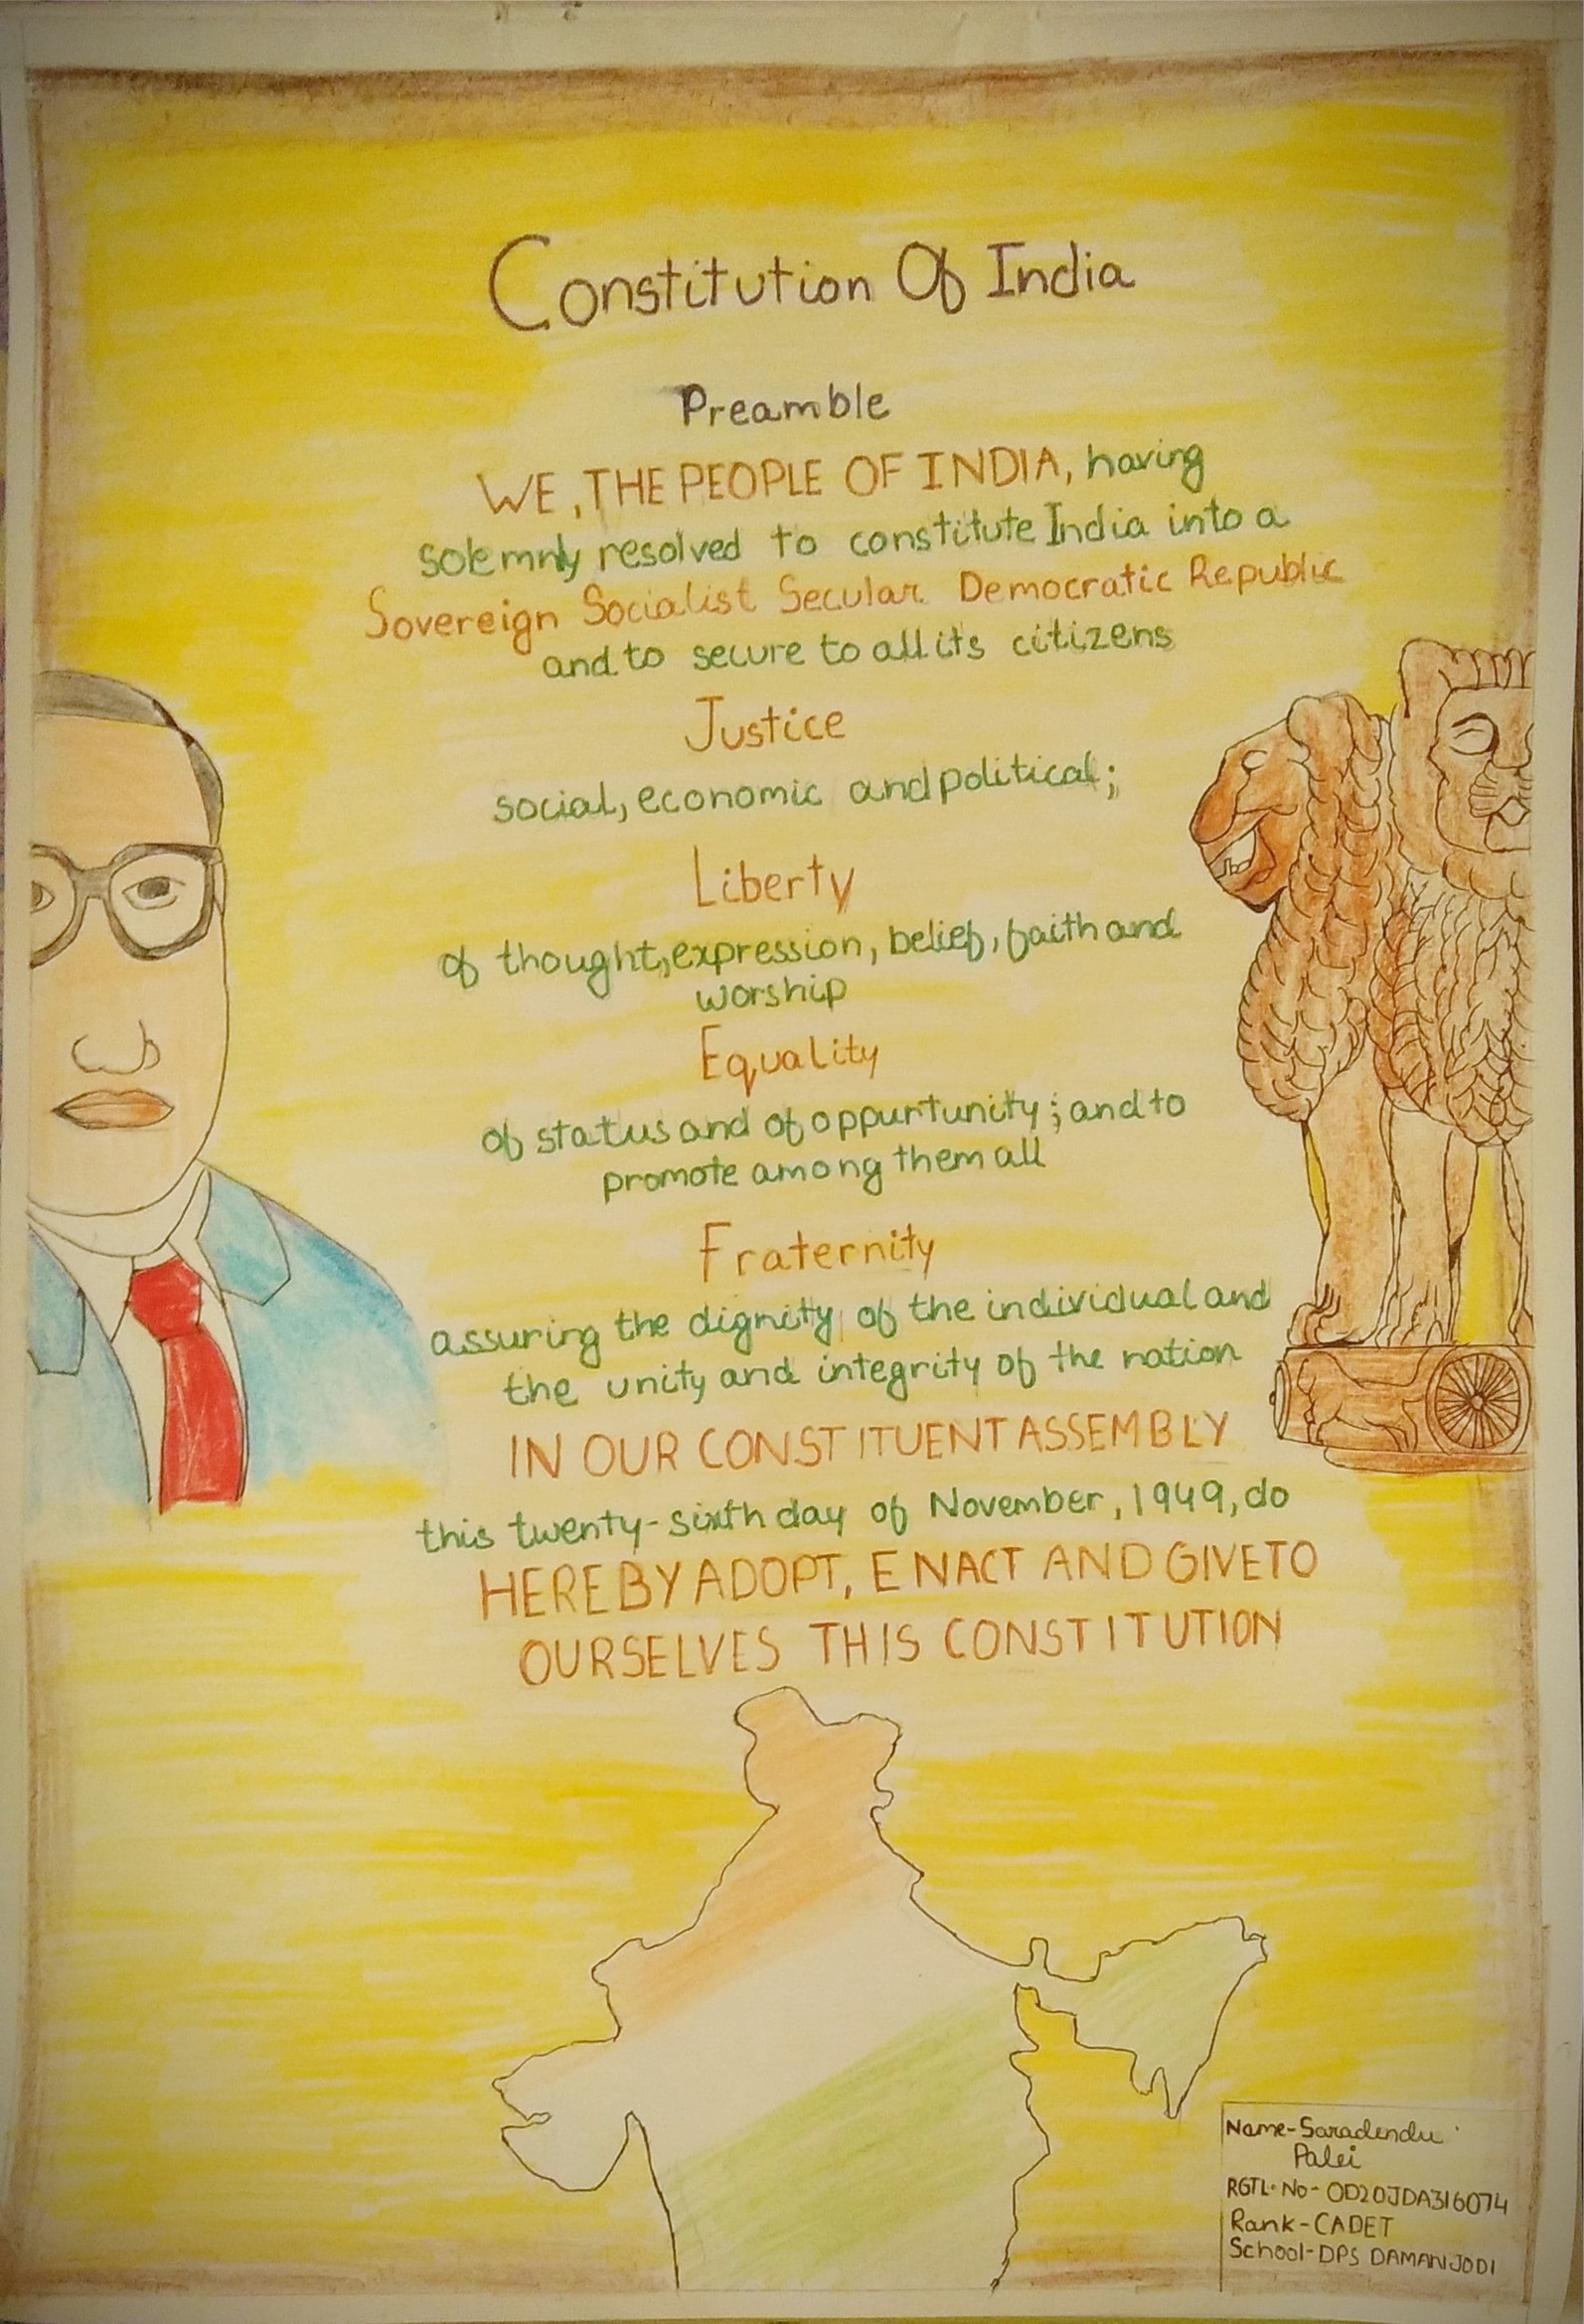 Constitution Of India
Preamble
WE, THE PEOPLE OF INDIA, having
solemnly resolved to constitute India into a
Sovereign Socialist Secular Democratic Republic
and to secure to all its citizens
Justice
social, economic and political;
Liberty
of thought, expression, belief, faith and
worship
Equality
of status and of oppurtunity; and to
promote among them all
Fraternity
assuring the dignity of the individual and
the unity and integrity of the nation
IN OUR CONSTITUENT ASSEMBLY
this twenty-sixth day of November, 1949, do
HEREBY ADOPT, ENACT AND GIVE TO
OURSELVES THIS CONSTITUTION
Name-Saradendu
Palei
RGTL. No- OD20JDA316074
Rank-CADET
School-DPS DAMANJODI